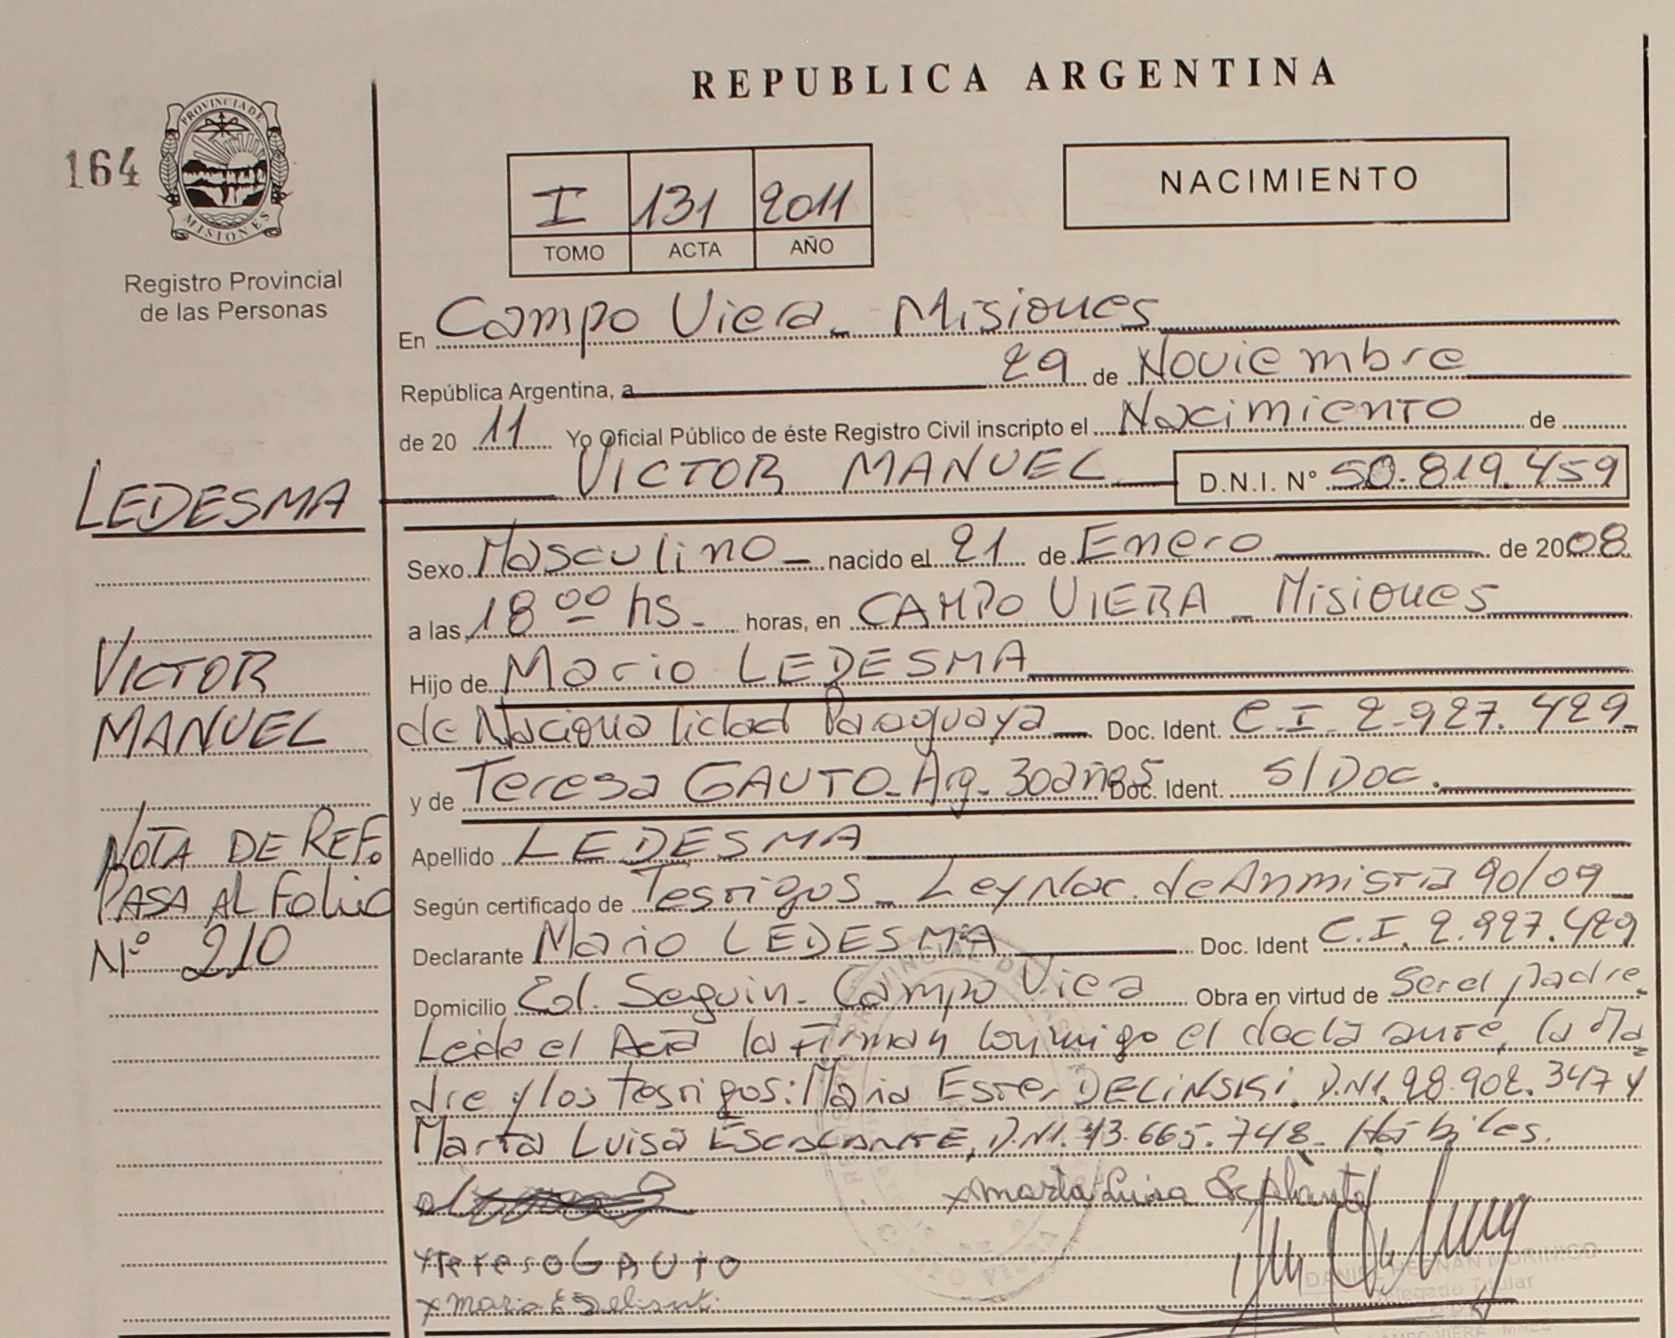 REPUBLICA ARGENTINA
164
PROVINCIA DE
MISIONES
Registro Provincial
de las Personas
I 131 2011
TOMO ACTA AÑO
NACIMIENTO
En Campo Viera - Misiones
República Argentina, a 29 de Noviembre
de 20 11 Yo Oficial Público de éste Registro Civil inscripto el Nacimiento de
VICTOR MANUEL D.N.I. N° 50.819.459
LEDESMA
VICTOR
MANUEL
NOTA DE REF.
PASA AL Folio
N° 210
Sexo Masculino - nacido el 21 de Enero de 2008
a las 18 00 hs - horas, en CAMPO VIERA - Misiones
Hijo de Mario LEDESMA
de Nacionalidad Paraguaya - Doc. Ident. C.I. 2.927.429-
y de Teresa GAUTO - Arg - 30 años Doc. Ident. S/Doc.
Apellido LEDESMA
Según certificado de Testigos - Ley Nac. de Anmistia 90/09
Declarante Mario LEDESMA Doc. Ident C.I. 2.927.429
Domicilio Col. Seguin - Campo Viera Obra en virtud de Ser el padre
Leida el Acta la Firman conmigo el declarante, la Ma
dre y los testigos: Maria Ester DELINSKI, D.N.I. 28.902.347 y
Marta Luisa ESCALANTE, D.N.I. 43.665.748 - Hábiles.
x marta Luisa
x Tereso GAUTO
x maria E
DANIEL HERNAN MORINIGO
Delegado Titular
CAMPO VIERA